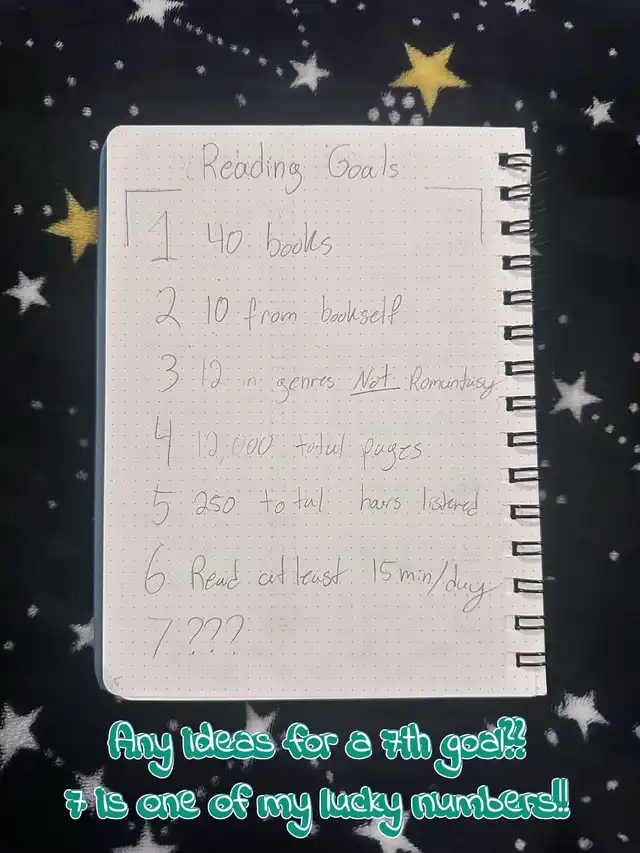 Reading Goals
1 40 books
2 10 from bookself
3 12 in genres Not Romantasy
4 12,000 total pages
5 250 total hours listened
6 Read at least 15min/day
7 ???
Any ideas for a 7th goal??
7 is one of my lucky numbers!!